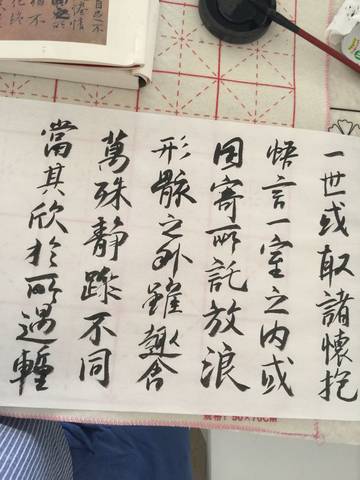 一世或取諸懷抱
悟言一室之内或
因寄所託放浪
形骸之外雖趣舍
萬殊靜躁不同
當其欣於所遇輊
规格：50×70CM